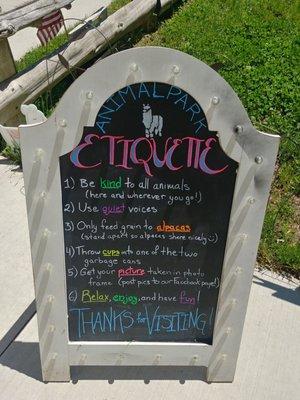 ANIMAL PARK
ETIQUETTE
1) Be kind to all animals
(here and wherever you go!)
2) Use quiet voices
3) Only feed grain to alpacas
(stand apart so alpacas share nicely ☺)
4) Throw cups into one of the two
garbage cans
5) Get your picture taken in photo
frame (post pics to our Facebook page!)
6) Relax, enjoy, and have fun!
THANKS for VISITING!